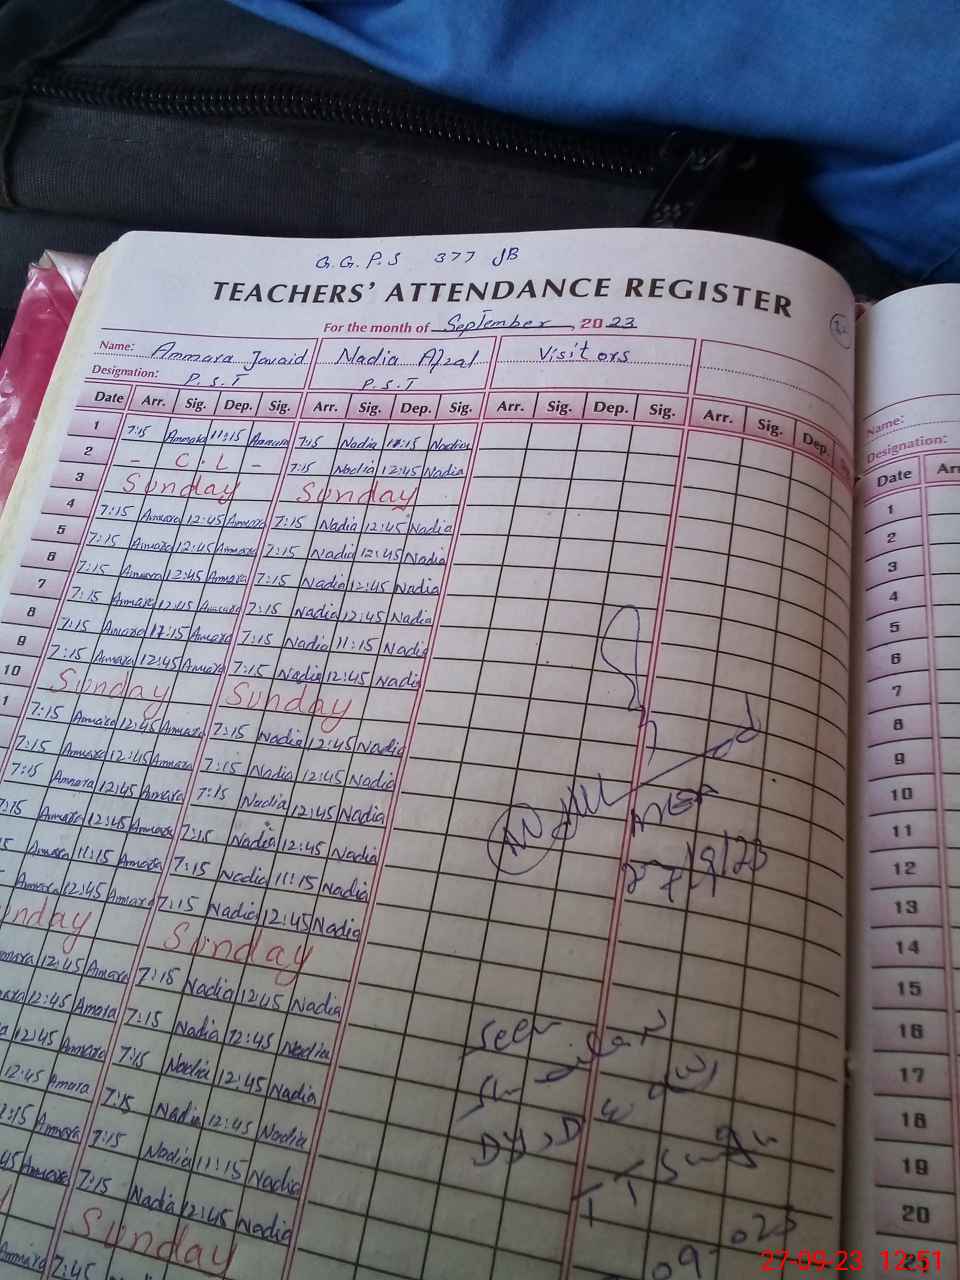 G.G.P.S 377 JB
TEACHERS' ATTENDANCE REGISTER
For the month of September, 2023
Name: Ammara Javaid Nadia Afzal Visitors
Designation: P.S.T P.S.T
Date Arr. Sig. Dep. Sig. Arr. Sig. Dep. Sig. Arr. Sig. Dep. Sig. Arr. Sig. Dep.
1 7:15 Ammara 11:15 Ammara 7:15 Nadia 11:15 Nadia
2 - C.L - 7:15 Nadia 12:45 Nadia
3 Sunday Sunday
4 7:15 Ammara 12:45 Ammara 7:15 Nadia 12:45 Nadia
5 7:15 Ammara 12:45 Ammara 7:15 Nadia 12:45 Nadia
6 7:15 Ammara 12:45 Ammara 7:15 Nadia 12:45 Nadia
7 7:15 Ammara 12:45 Ammara 7:15 Nadia 12:45 Nadia
8 7:15 Ammara 11:15 Ammara 7:15 Nadia 11:15 Nadia
9 7:15 Ammara 12:45 Ammara 7:15 Nadia 12:45 Nadia
10 Sunday Sunday
1 7:15 Ammara 12:45 Ammara 7:15 Nadia 12:45 Nadia
7:15 Ammara 12:45 Ammara 7:15 Nadia 12:45 Nadia
7:15 Ammara 12:45 Ammara 7:15 Nadia 12:45 Nadia
7:15 Ammara 12:45 Ammara 7:15 Nadia 12:45 Nadia
15 Ammara 11:15 Ammara 7:15 Nadia 11:15 Nadia
Ammara 12:45 Ammara 7:15 Nadia 12:45 Nadia
nday Sunday
mara 12:45 Ammara 7:15 Nadia 12:45 Nadia
ara 12:45 Amara 7:15 Nadia 12:45 Nadia
a 12:45 Ammara 7:15 Nadia 12:45 Nadia
12:45 Amara 7:15 Nadia 12:45 Nadia
11:15 Ammara 7:15 Nadia 11:15 Nadia
45 Ammara 7:15 Nadia 12:45 Nadia
Sunday
Ammara 7:45
AEO
27/9/23
Seen
09-023
Name:
Designation:
Date Arr
1
2
3
4
5
6
7
8
9
10
11
12
13
14
15
16
17
18
19
20
27-09-23 12:51